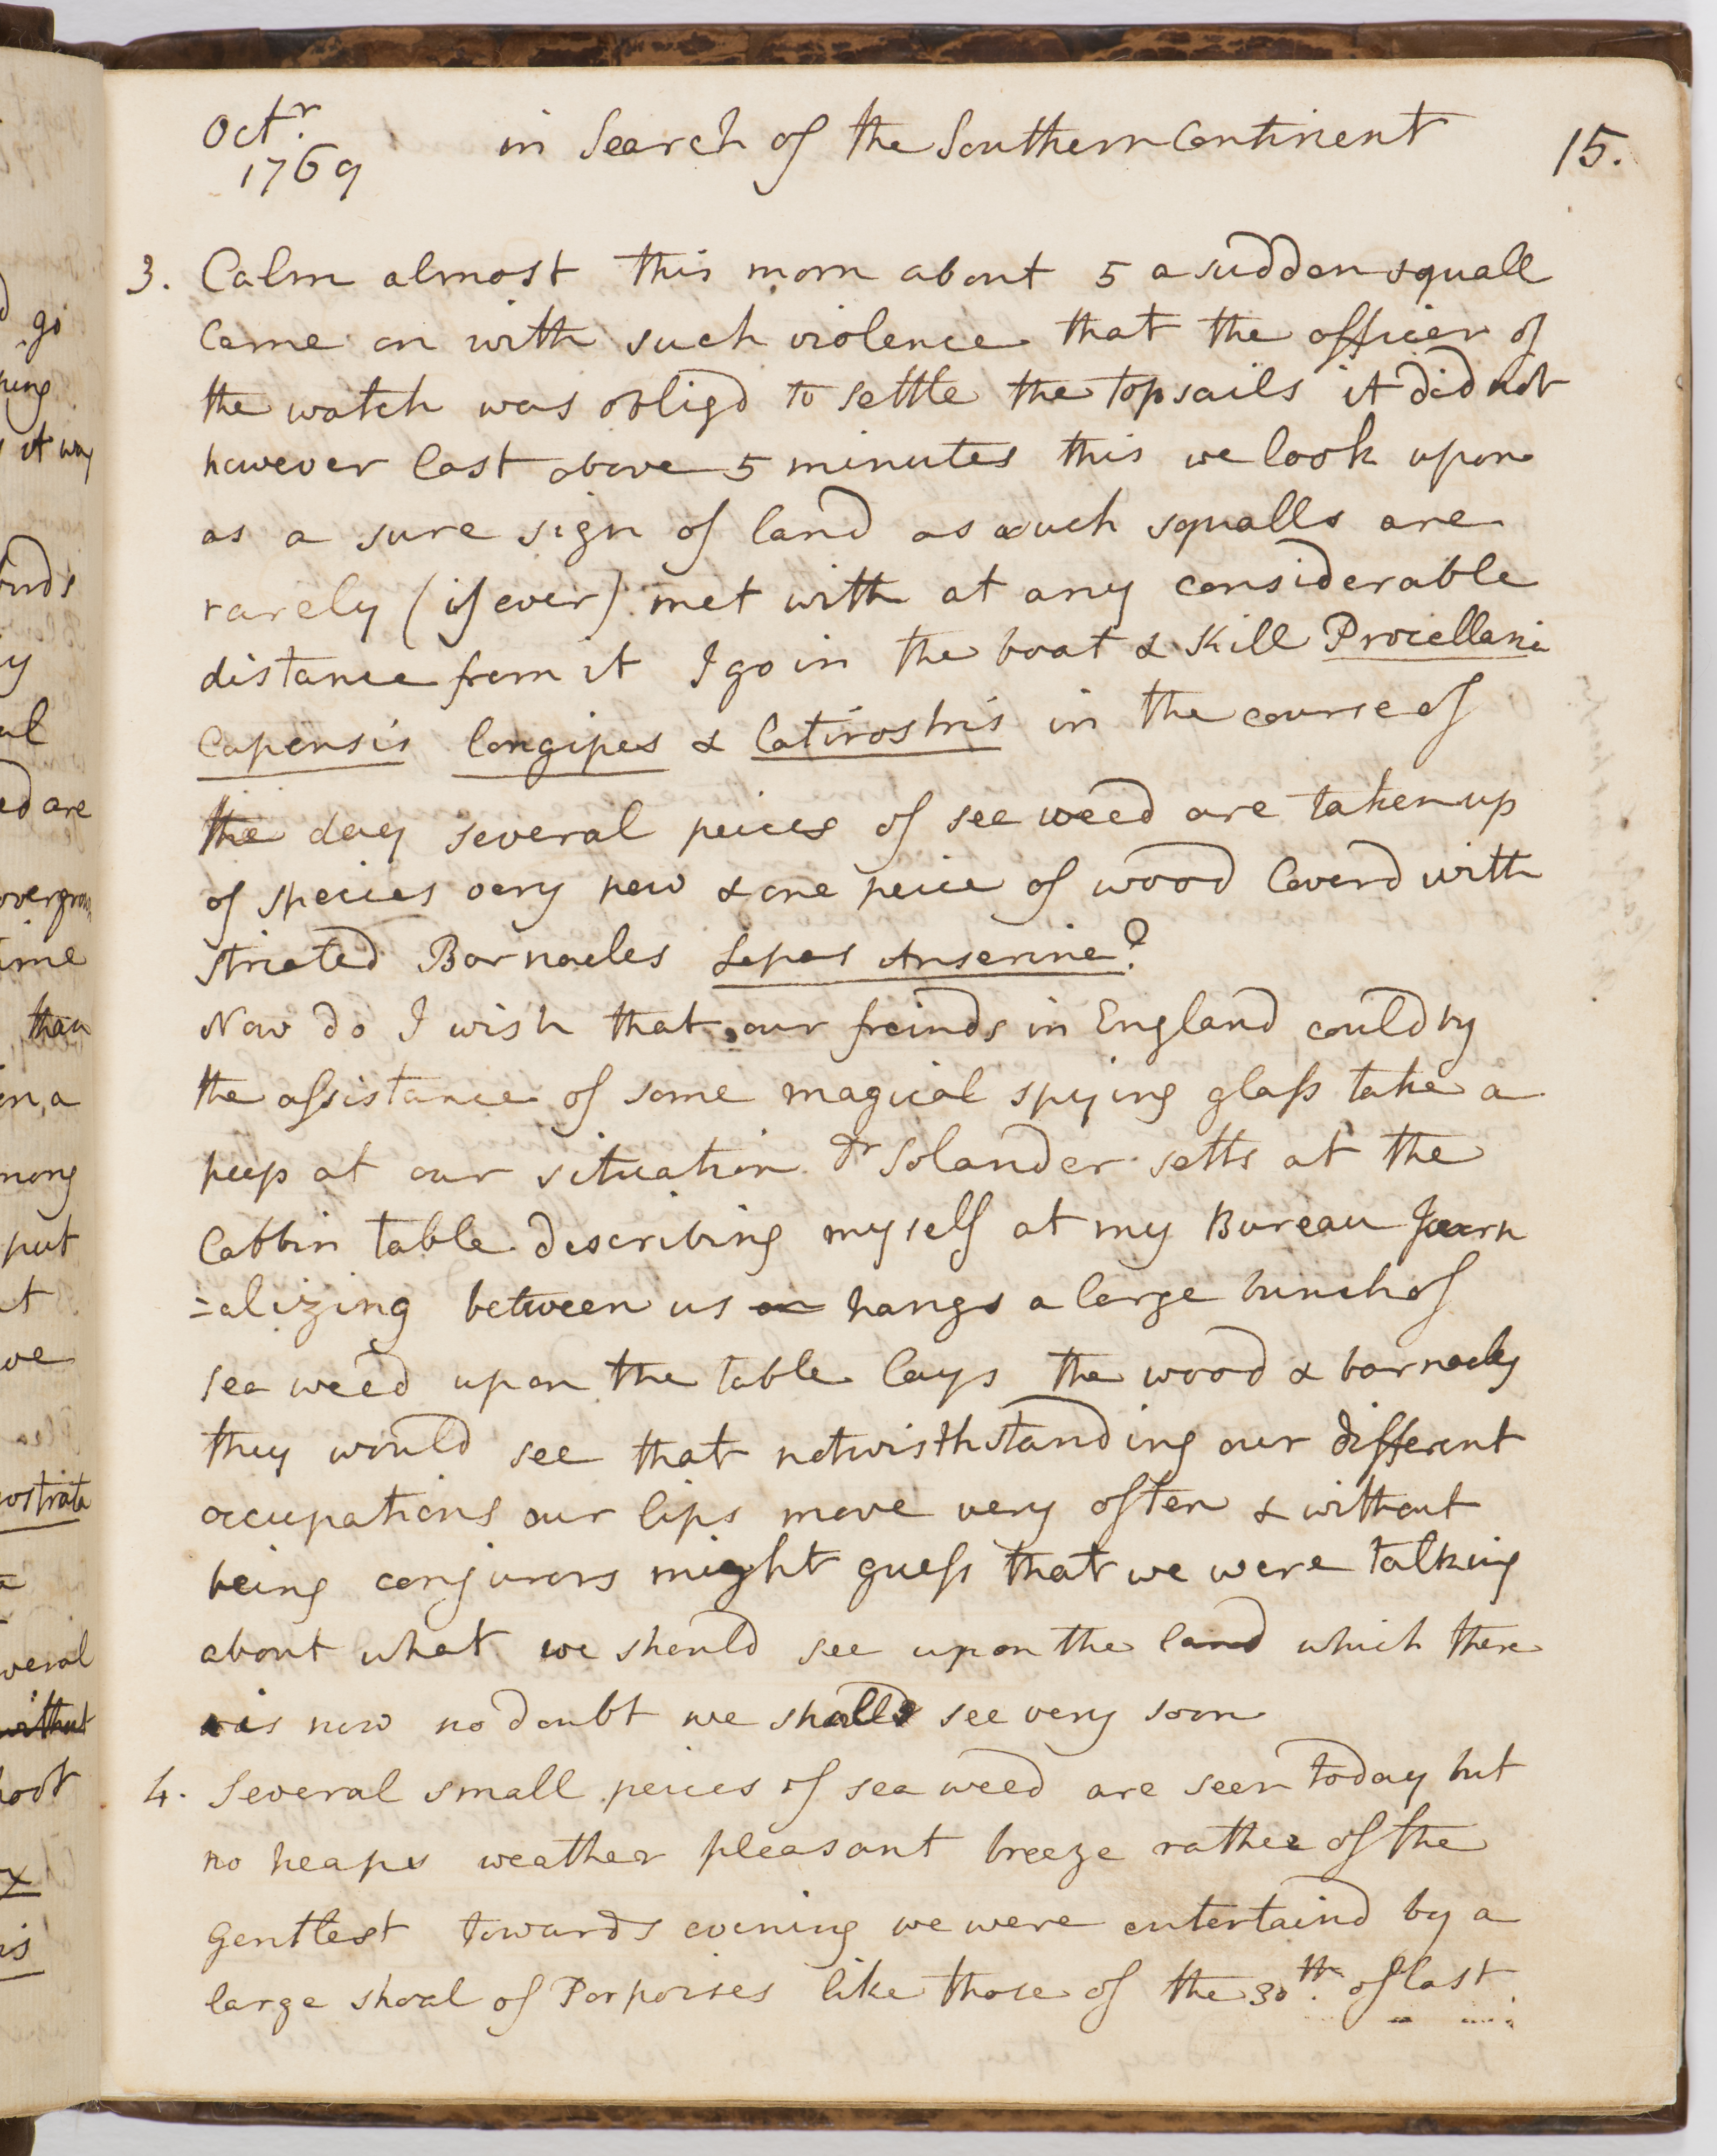 Octr. in Search of the Southern Continent 15.
1769
3. Calm almost this morn about 5 a sudden squall
came on with such violence that the officer of
the watch was obligd to settle the topsails it did not
however last above 5 minutes this we look upon
as a sure sign of land as such squalls are
rarely (if ever) met with at any considerable
distance from it I go in the boat & kill Procellaria
Capensis longipes & latirostris in the course of
the day several peices of see weed are taken up
of species very new & one peice of wood coverd with
striated Barnacles Lepas Anserine?
Now do I wish that our freinds in England could by
the assistance of some magical spying glass take a
peep at our situation Dr Solander setts at the
Cabbin table describing myself at my Bureau Journ
=alizing between us hangs a large bunch of
sea weed upon the table lays the wood & barnacles
they would see that notwisthstanding our different
occupations our lips move very often & without
being conjurors might guess that we were talking
about what we should see upon the land which there
is now no doubt we shall see very soon
4. Several small peices of sea weed are seen today but
no heaps weather pleasant breeze rather of the
gentlest towards evening we were entertaind by a
large shoal of Porpoises like those of the 30th. of last
go
it way
are
overgrown
than
a
among
put
ve
without